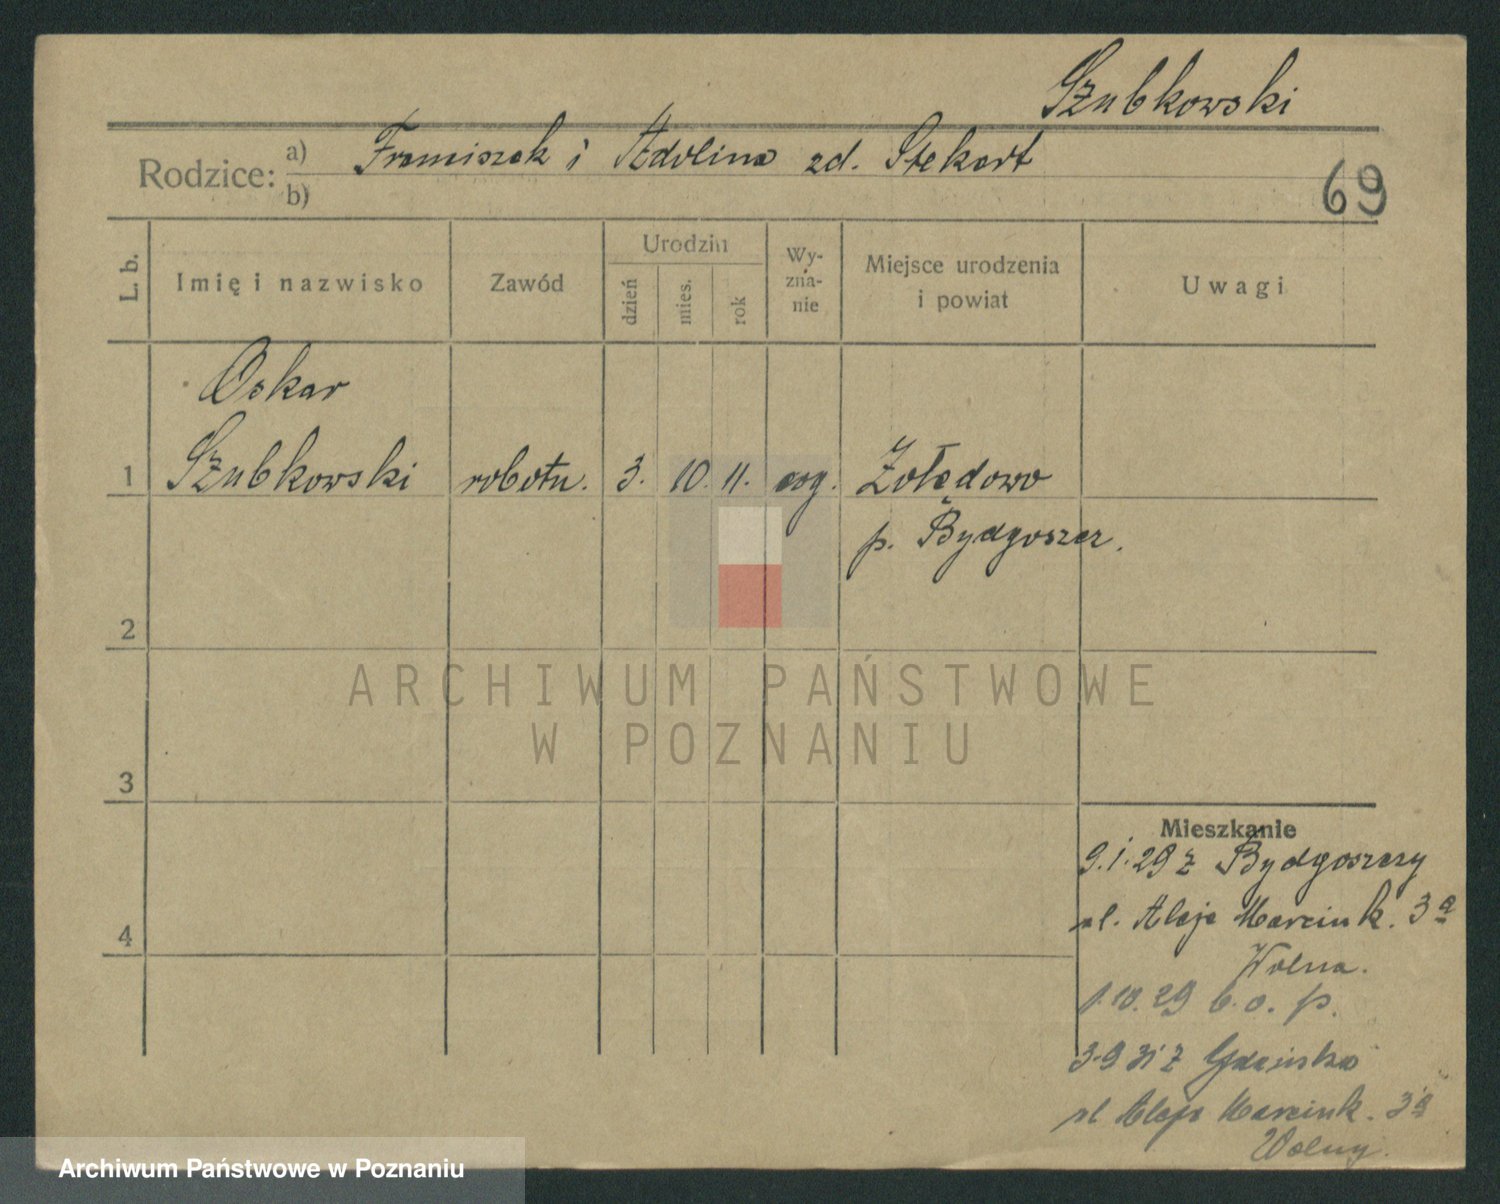 Szubkowski
Rodzice: a) Franciszek i Adolina zd. Stekart
b)
69
L. b.
Imię i nazwisko
Zawód
Urodziu
dzień
mies.
rok
Wy-
zna-
nie
Miejsce urodzenia
i powiat
Uwagi
Oskar
1 Szubkowski robotn. 3. 10. 11. ewg. Żołędowo
p. Bydgoszcz.
2
3
4
Mieszkanie
9.1.29 z Bydgoszczy
ul. Aleje Marcink. 3a
Wolna.
1.10.29 b. o. p.
3.9 31 z Gdańska
ul Aleje Marcink. 3a
Wolny.
ARCHIWUM PAŃSTWOWE
W POZNANIU
Archiwum Państwowe w Poznaniu